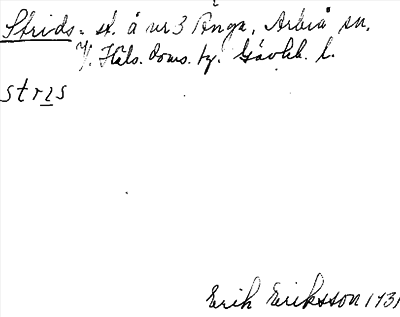 Strids- st. å nr 3 Ånga, Arbrå sn,
V. Häls. doms. tg. Gävleb. l.
strɪs
Erik Eriksson 1731